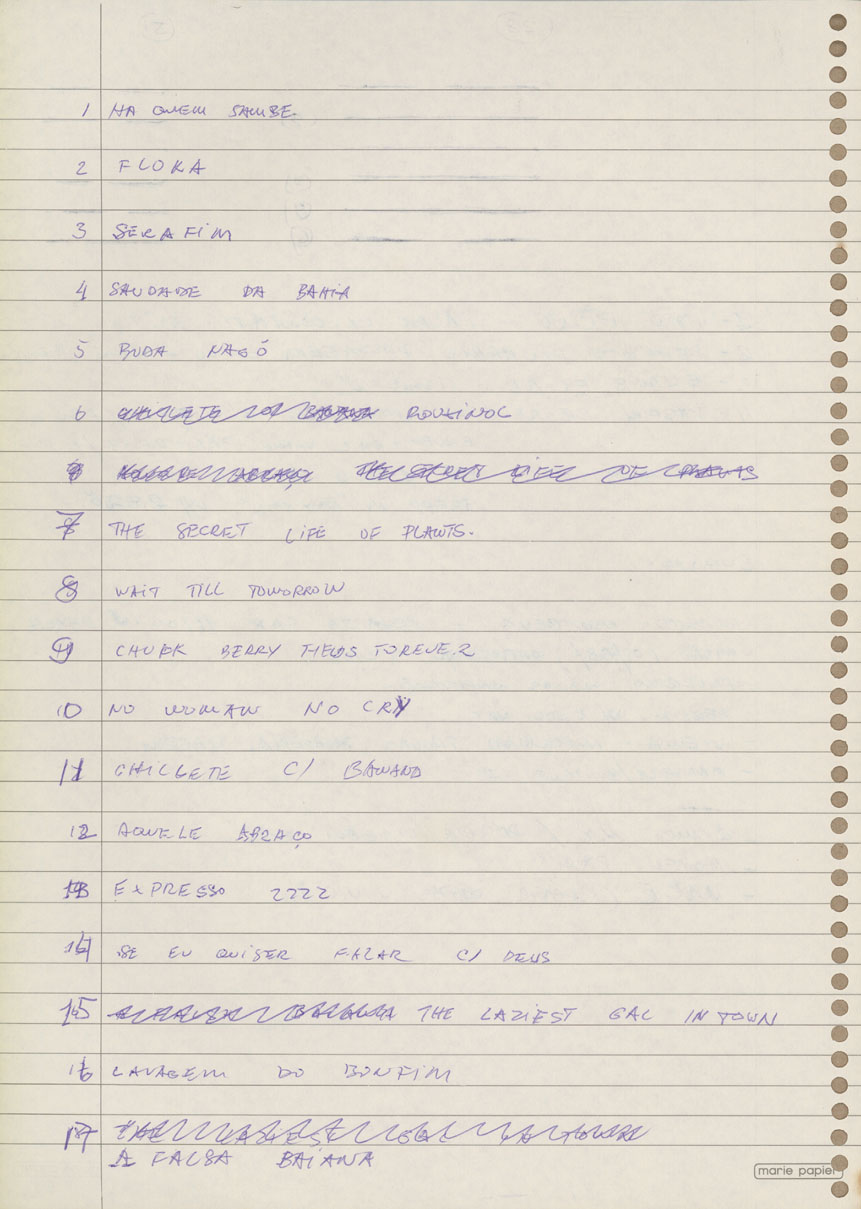 1 HÁ QUEM SAMBE
2 FLORA
3 SERAFIM
4 SAUDADE DA BAHIA
5 BUDA NAGÔ
6 CHICLETE C/ BANANA ROUXINOL
THE SECRET LIFE OF PLANTAS
7 THE SECRET LIFE OF PLANTS.
8 WAIT TILL TOMORROW
9 CHUCK BERRY FIELDS FOREVER
10 NO WOMAN NO CRY
11 CHICLETE C/ BANANA
12 AQUELE ABRAÇO
13 EXPRESSO 2222
14 SE EU QUISER FALAR C/ DEUS
15 THE LAZIEST GAL IN TOWN
16 LAVAGEM DO BONFIM
17 THE LAZIEST GAL IN TOWN
A FALSA BAIANA
marie papier